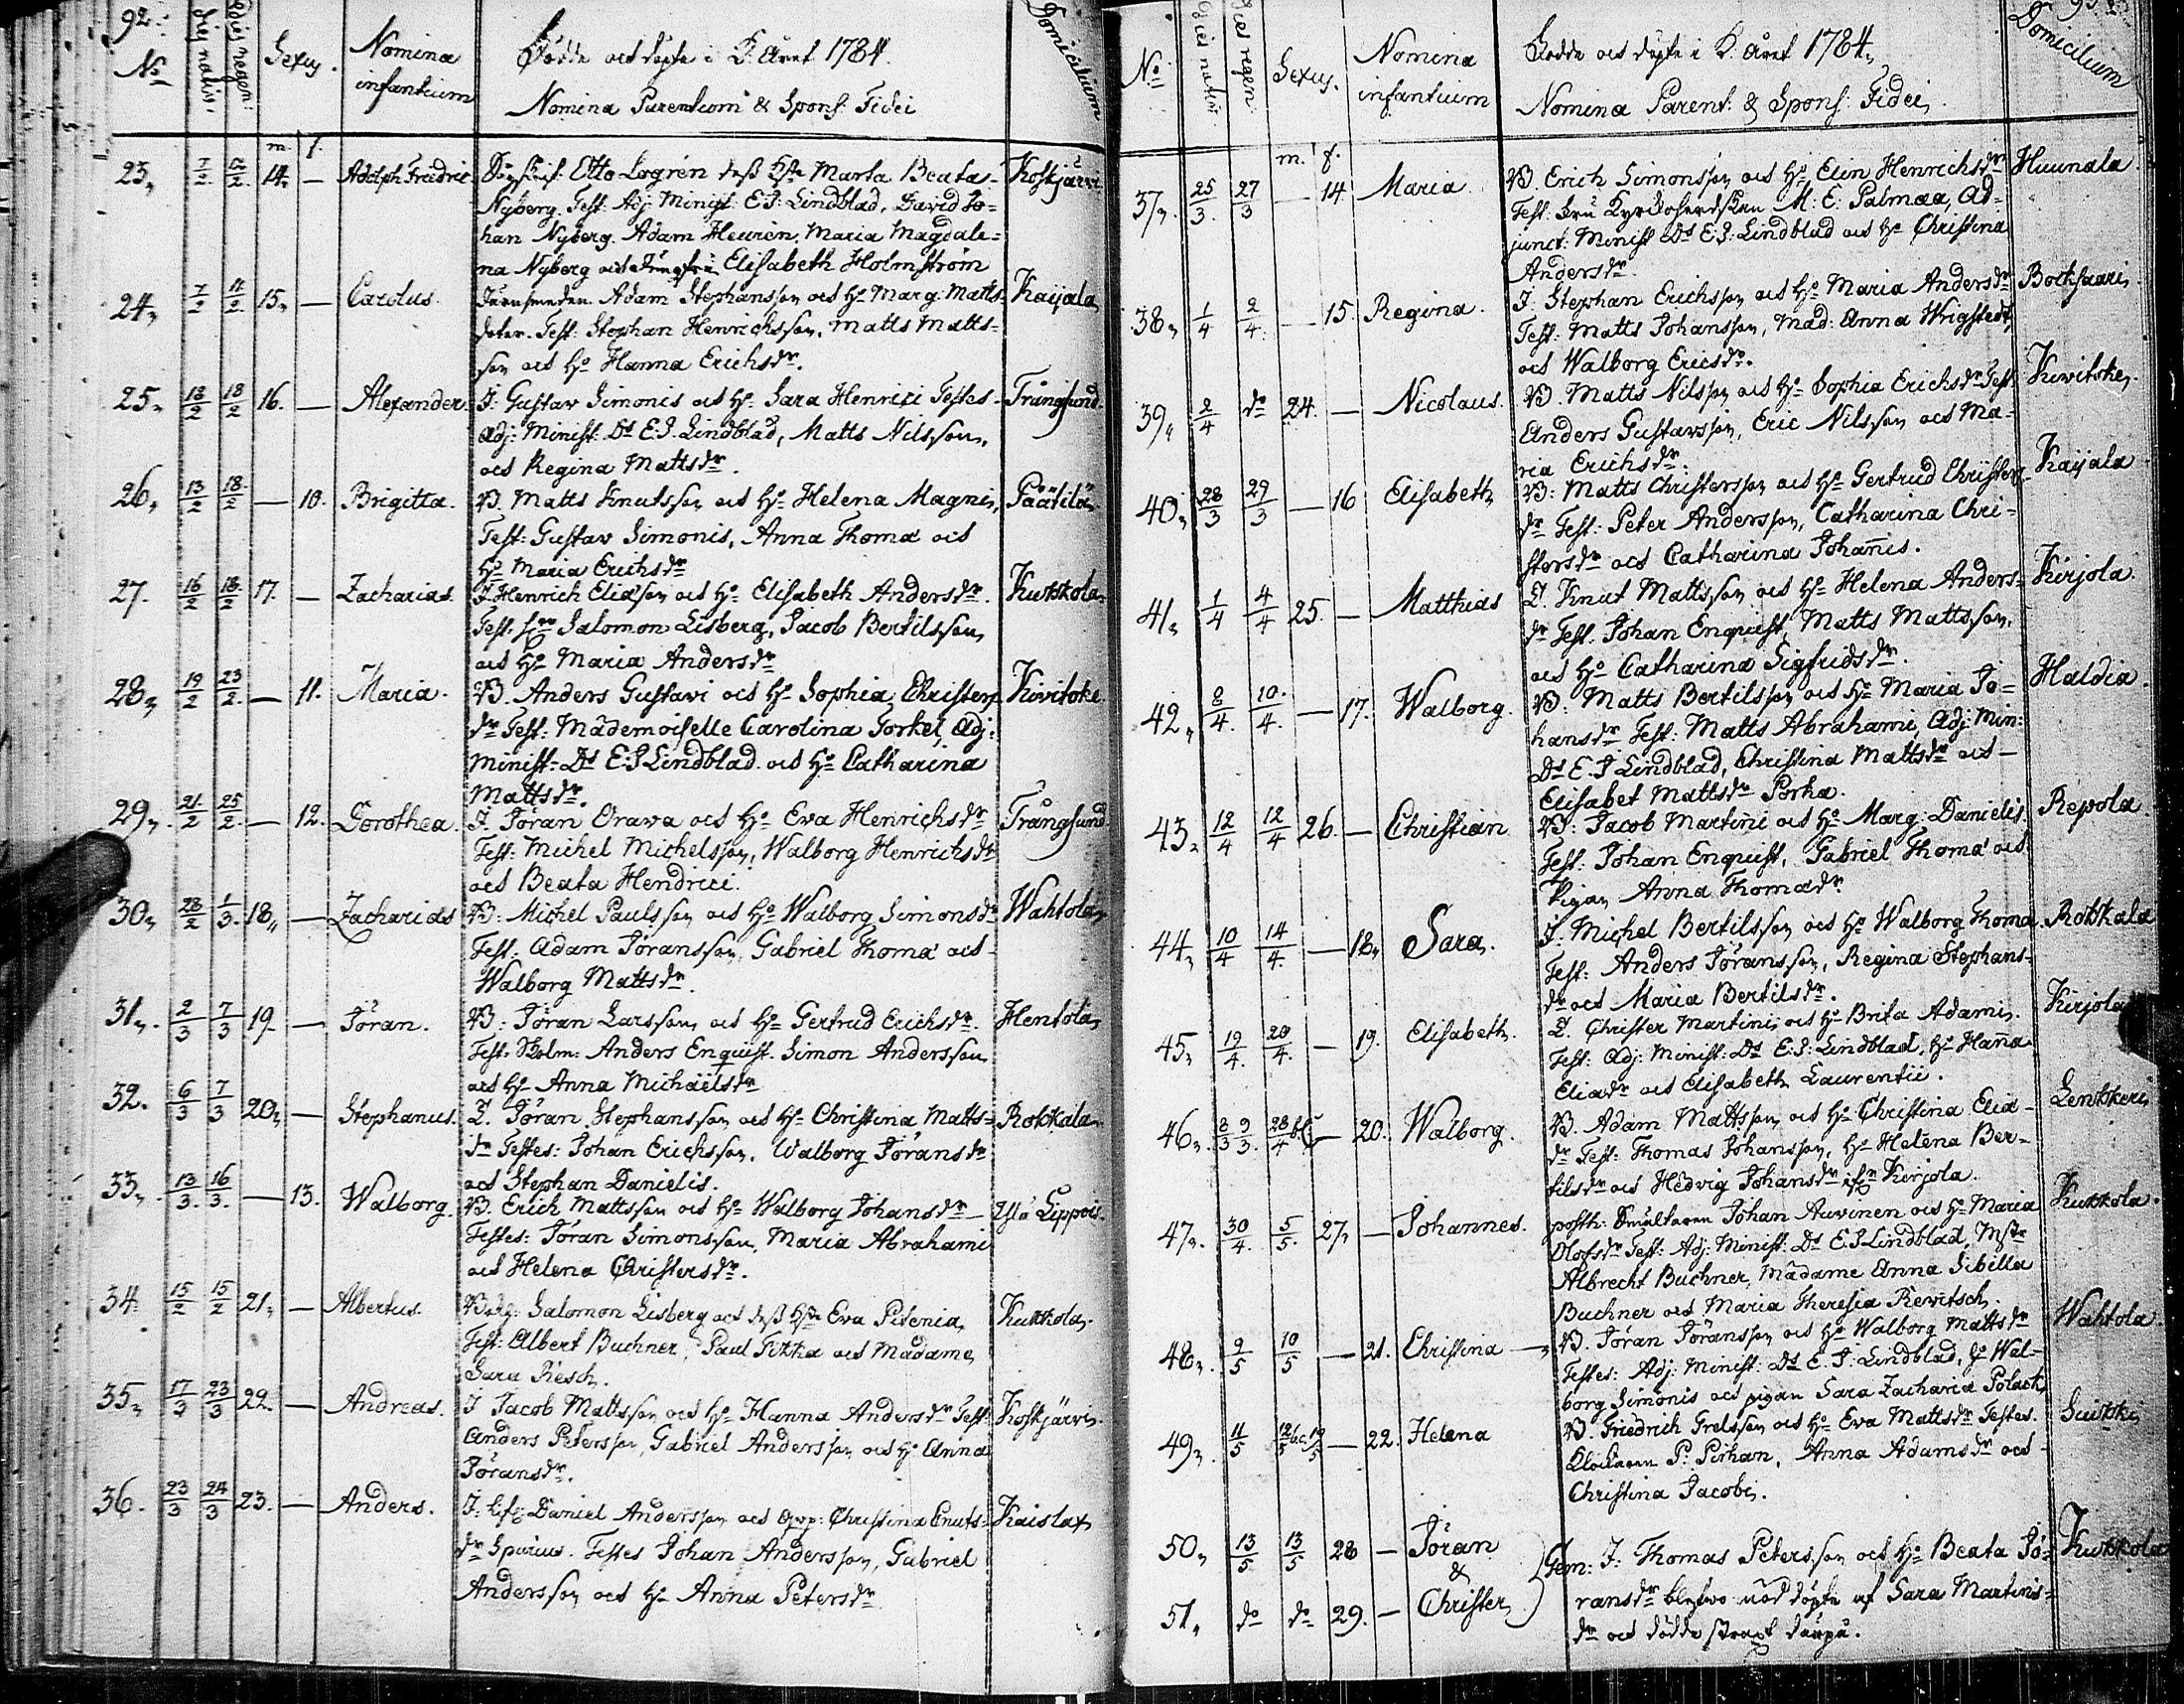 92.
No
Dies nativ.
Dies regen:
Sexus.
Nomina infantium
Födde och döpte i K. Året 1784.
Nomina Parentum & Spons. Fidei
Domicilium
m. f.
23, 7/2 12/2 14. — Adolph Fredric Otto Logrén dess H:u Marta Beata Koskjärvi
Nyberg. Test. Adj. Minist: E:I: Lindblad, David Jo=
han Nyberg. Adam Heurén, Maria Magdale=
na Nyberg och Jungfru Elisabeth Holmström
24, 7/2 11/2 15, — Carolus. Adam Stephansson och Ho Marg: Matts- Kaijala
doter. Test: Stephan Henrichsson, Matts Matts=
son och Ho Hanna Erichsdr.
25, 12/2 18/2 16. — Alexander. I. Gustav Simonis och Ho. Sara Henrici Testes- Trångsund.
Adj: Minist: Ds E.I. Lindblad, Matts Nilsson,
och Regina Mattsdr.
26, 13/2 18/2 — 10. Brigitta. B. Matts Knutsson och Ho Helena Magni, Päätilä,
Test: Gustav Simonis, Anna Thomæ och
Ho Maria Erichsdr
27. 16/2 18/2 17. — Zacharias. I. Henrich Eliasson och Ho Elisabeth Andersdr. Kukkola,
Test: Salomon Lisberg, Jacob Bertilsson,
och Ho Maria Andersdr
28, 19/2 23/2 — 11. Maria. B. Anders Gustavi och Ho Sophia Christers Kiwitoke.
dr Test: Mademoiselle Carolina Torkel, Adj:
Minist: Ds E:I Lindblad och Ho Catharina
Mattsdr.
29, 21/2 25/2 — 12. Dorothea. I. Jöran Orava och Ho Eva Henrichsdr Trångsund
Test: Michel Michelsson, Walborg Henrichsdr
och Beata Hendrici.
30, 28/2 1/3 18, — Zacharias B: Michel Paulsson och Ho Walborg Simonsdr Wahtola,
Test: Adam Jöransson, Gabriel Thomæ och
Walborg Mattsdr.
31, 2/3 7/3 19. — Jöran. B: Jöran Larsson och Ho Gertrud Erichsdr. Hentola,
Test: Anders Enquist. Simon Andersson
och Ho Anna Michaëlsdr
32. 6/3 7/3 20, — Stephanus. I. Jöran Stephansson och Ho Christina Matts= Rokkala
dr Testes: Johan Erichsson, Walborg Jöransdr
och Stephan Danielis.
33, 13/3 16/3 — 13. Walborg. B. Erich Mattsson och Ho Walborg Johansdr Ylä Lippois
Testes: Jöran Simonsson, Maria Abrahami
och Helena Christersdr.
34 15/2 15/2 21, — Albertus. Salomon Lisberg och dess H:u Eva Pitenia, Kukkola,
Test: Albert Buchner, Paul Tikka och Madame,
Sara Resch.
35, 17/3 23/3 22. — Andreas. I Jacob Mattsson och Ho Hanna Andersdr Test: Koskjärvi,
Anders Petersson, Gabriel Andersson och Ho Anna
Jöransdr.
36. 23/3 24/3 23. — Anders. I: Daniel Andersson och Christina Cnuts= Kaislax
dr Spurius. Testes Johan Andersson, Gabriel
Andersson och Ho Anna Petersdr
No
Dies nativ
Dies regen:
Sexus.
Nomina infantium
Födde och döpte i K. Året 1784,
Nomina Parent: & Spons: Fidei,
Domicilium
m. f.
37, 25/3 27/3 — 14 Maria B. Erich Simonsson och Ho Elin Henrichsdr Huunala
Test: Fru Kyrckoherdskan M: E: Palmæa, Ad=
junct: Minist Ds E:I: Lindblad och Ho Christina
Andersdr.
38, 1/4 2/4 — 15. Regina. I. Stephan Erichsson och Ho Maria Andersdr Bocksaari,
Test: Matts Johansson, Mad: Anna Wrigstedt,
och Walborg Ericsdr.
39, 2/4 do 24. — Nicolaus. B. Matts Nilsson och Ho Sophia Erichsdr Test Kiwitoke,
Anders Gustavsson, Eric Nilsson och Ma=
ria Erichsdr.
40, 28/3 29/3 — 16 Elisabeth, B: Matts Christersson och Ho Gertrud Christers Kaijala
dr Test: Peter Andersson, Catharina Chri=
stersdr och Catharina Johanis.
41, 1/4 4/4 25. — Matthias I. Knut Mattsson och Ho Helena Anders= Kirjola.
dr Test. Johan Enquist, Matts Mattsson,
och Ho Catharina Sigfridsdr.
42, 8/4 10/4 — 17. Walborg. B: Matts Bertilsson och Ho Maria Jo= Haldia.
hansdr Test: Matts Abrahami, Adj: Min:
Ds E.I Lindblad, Christina Mattsdr och —
Elisabet Mattsdr Porka.
43, 12/4 12/4 26. — Christian B: Jacob Martini och Ho Marg: Danielis Repola
Test: Johan Enquist, Gabriel Thomæ och
Pigan Anna Thomædr
44, 10/4 14/4 — 18, Sara. I: Michel Bertilsson och Ho Walborg Thomæ Rokkala
Test: Anders Jöransson, Regina Stephans=
dr och Maria Bertilsdr.
45, 19/4 20/4 — 19. Elisabeth. I. Christer Martini, och Ho Brita Adami. Kirjola
Test: Adj: Minist: Ds E:I: Lindblad, Ho Hanna
Eliædr och Elisabeth Laurentii.
46, 8/3 9/3 28/4 — 20. Walborg. B. Adam Mattsson och Ho Christina Eliæ- Lenkkeri,
dr Test: Thomas Johansson, Ho Helena Ber=
tilsdr och Hedvig Johansdr Kirjola.
47, 30/4 5/5 27, — Johannes. posth: Johan Auvinen och Ho Maria Kukkola.
Olofsdr Test: Adj: Minist: Ds E.I Lindblad, Mstr
Albrecht Buchner, Madame Anna Sibilla
Buchner och Maria Theresia Rewitsch.
48, 9/5 10/5 — 21. Christina — B. Jöran Jöransson och Ho Walborg Mattsdr Wahtola.
Testes: Adj: Minist: Ds E. I: Lindblad, Ho Wal=
borg Simonis och pigan Sara Zachariæ Polack,
49, 11/5 12/5 19/5 — 22. Helena B. Friedrich Grelsson och Ho Eva Mattsdr Testes. Suikki,
Klockaren P: Pirhan, Anna Adamsdr och
Christina Jacobi.
50, 13/5 13/5 28 — Jöran Gem: I: Thomas Petersson och Ho Beata Jö= Kukkola
&
ransdr blefwo nöddöpte af Sara Martinis=
51, do do 29. — Christer,
dr och dödde strax derpå.